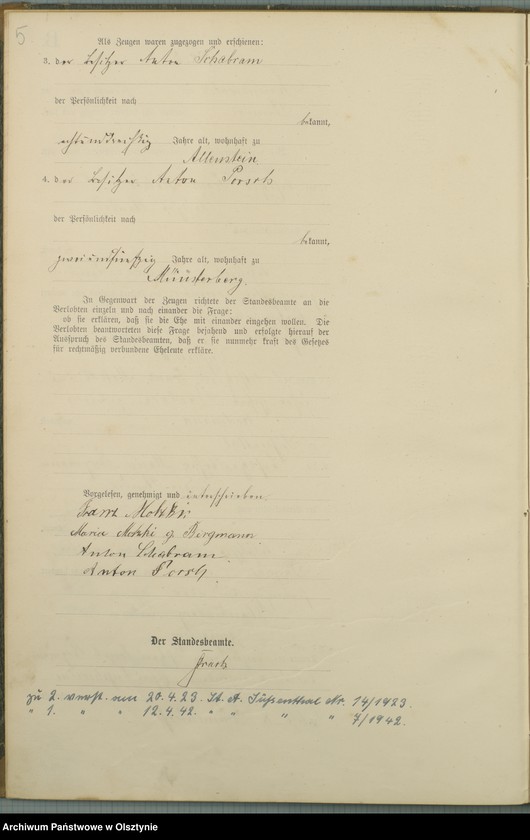 5
Als Zeugen waren zugezogen und erschienen:
3. der Besitzer Anton Schabram
der Persönlichkeit nach
bekannt,
achtunddreißig Jahre alt, wohnhaft zu
Allenstein
4. der Besitzer Anton Porsch
der Persönlichkeit nach
bekannt,
zweiundfünfzig Jahre alt, wohnhaft zu
Münsterberg.
In Gegenwart der Zeugen richtete der Standesbeamte an die
Verlobten einzeln und nach einander die Frage:
ob sie erklären, daß sie die Ehe mit einander eingehen wollen. Die
Verlobten beantworteten diese Frage bejahend und erfolgte hierauf der
Ausspruch des Standesbeamten, daß er sie nunmehr kraft des Gesetzes
für rechtmäßig verbundene Eheleute erkläre.
Vorgelesen, genehmigt und unterschrieben
Franz Motzki
Maria Motzki g. Bergmann
Anton Schabram
Anton Porsch
Der Standesbeamte.
zu 2. verst. am 20.4.23. St. A. Süßenthal Nr. 14/1923.
" 1. " " 12.4.42. " " " " 7/1942.
Archiwum Państwowe w Olsztynie